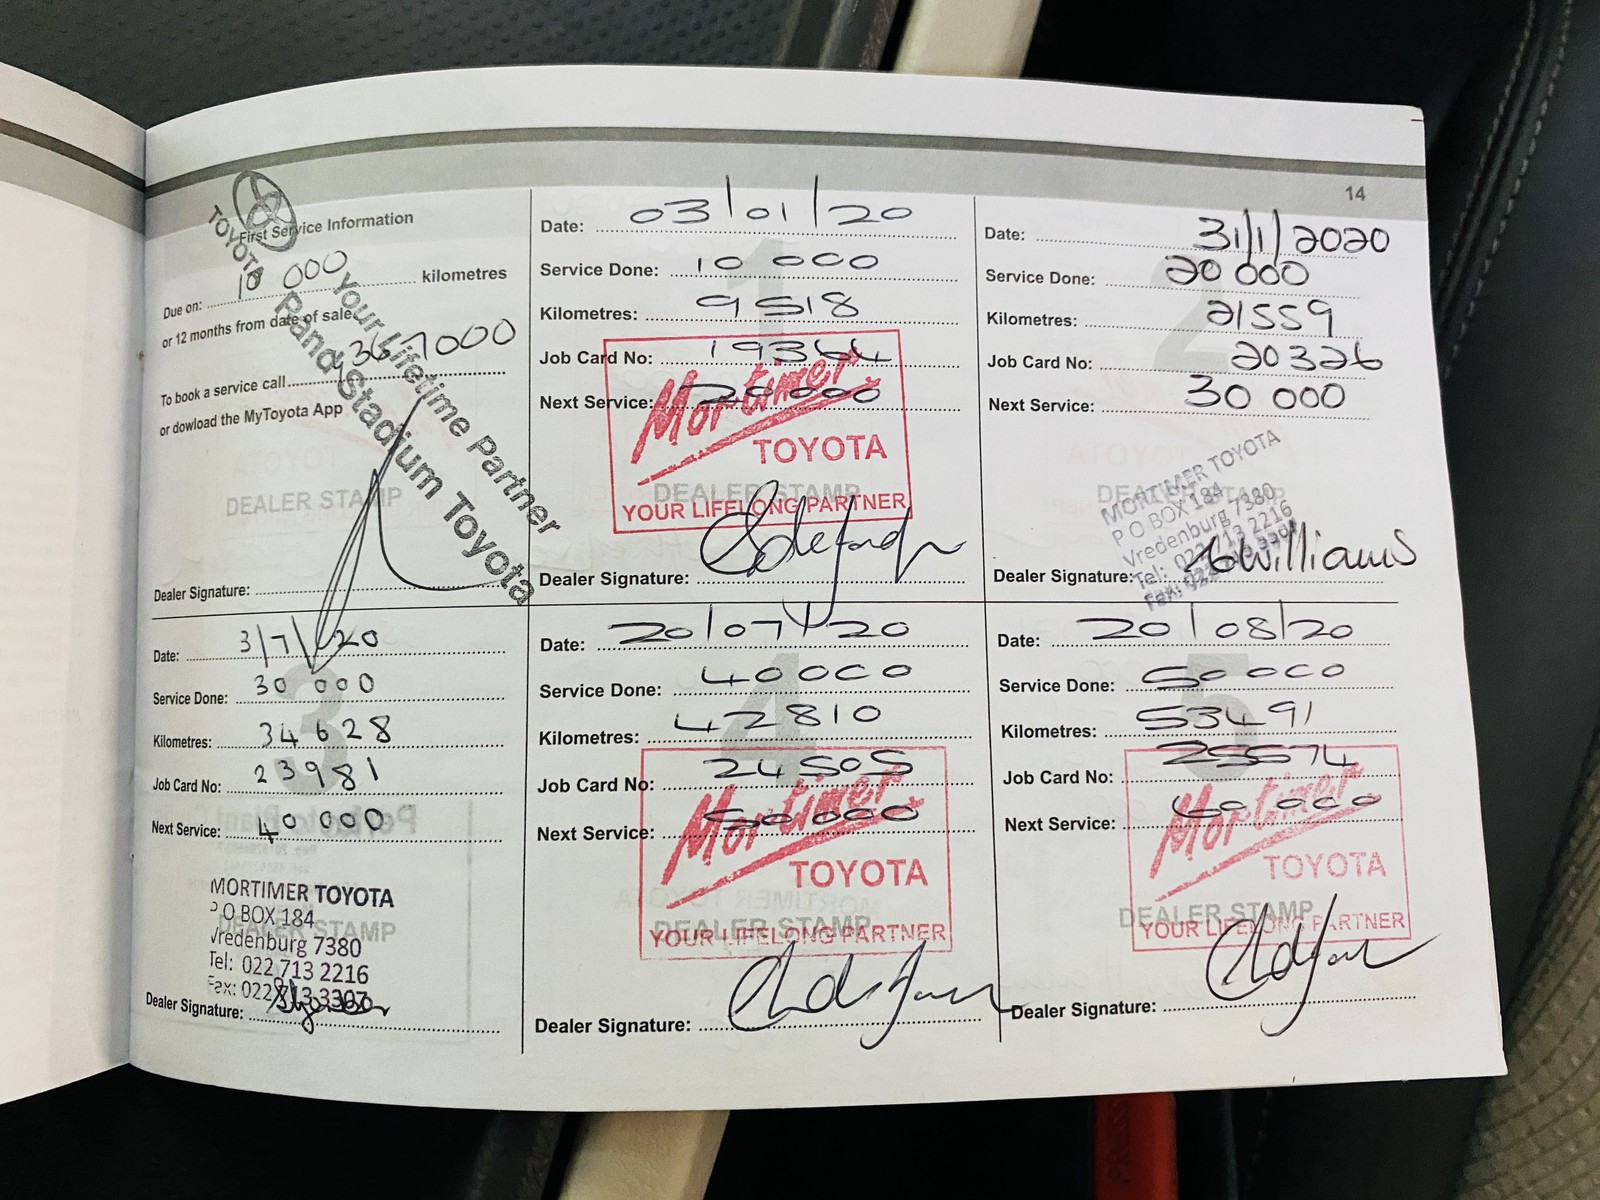 14
TOYOTA Your Lifetime Partner
Rand Stadium Toyota
First Service Information
Due on: 10 000 kilometres
or 12 months from date of sale
367 7000
To book a service call
or dowload the MyToyota App
DEALER STAMP
Dealer Signature:
Date: 03/01/20
Service Done: 10 000
Kilometres: 9518
Job Card No: 19364
Next Service: 20 000
Mortimer
TOYOTA
DEALER STAMP
YOUR LIFELONG PARTNER
Dealer Signature:
Date: 31/1/2020
2
Service Done: 20 000
Kilometres: 21559
Job Card No: 20326
Next Service: 30 000
DEALER STAMP
MORTIMER TOYOTA
P O BOX 184
Vredenburg 7380
Tel: 022 713 2216
Dealer Signature: Williams
Date: 3/7/20
3
Service Done: 30 000
Kilometres: 34628
Job Card No: 23981
Next Service: 40 000
MORTIMER TOYOTA
P O BOX 184
DEALER STAMP
Vredenburg 7380
Tel: 022 713 2216
Fax: 022 713 3307
Dealer Signature:
Date: 20/07/20
4
Service Done: 40000
Kilometres: 42810
Job Card No: 24505
Next Service: 50 000
Mortimer
TOYOTA
DEALER STAMP
YOUR LIFELONG PARTNER
Dealer Signature:
Date: 20/08/20
5
Service Done: 50000
Kilometres: 53491
Job Card No: 25574
Next Service: 60 000
Mortimer
TOYOTA
DEALER STAMP
YOUR LIFELONG PARTNER
Dealer Signature: